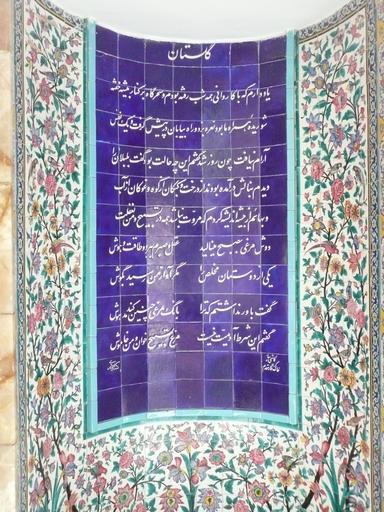 گلستان
یاد دارم که با کاروانی همه شب رفته بودم و سحرگاه بر کنار بیشه خفته
شوریده همراه ما بود نعره بزد و راه بیابان در پیش گرفت و یک نفس
آرام نیافت چون روز شد گفتمش این چه حالت بود گفت بلبلان را
دیدم بنالش درآمده بودند از درخت و کبکان از کوه و غوکان از آب
و بهایم از بیشه اندیشه کردم که مروت نباشد همه در تسبیح و من بغفلت
دوش مرغی بصبح مینالید عقل و صبرم ببرد و طاقت و هوش
یکی از دوستان مخلص را مگر آواز من رسید بگوش
گفت باور نداشتم که ترا بانگ مرغی چنین کند مدهوش
گفتم این شرط آدمیت نیست مرغ تسبیح خوان و من خاموش